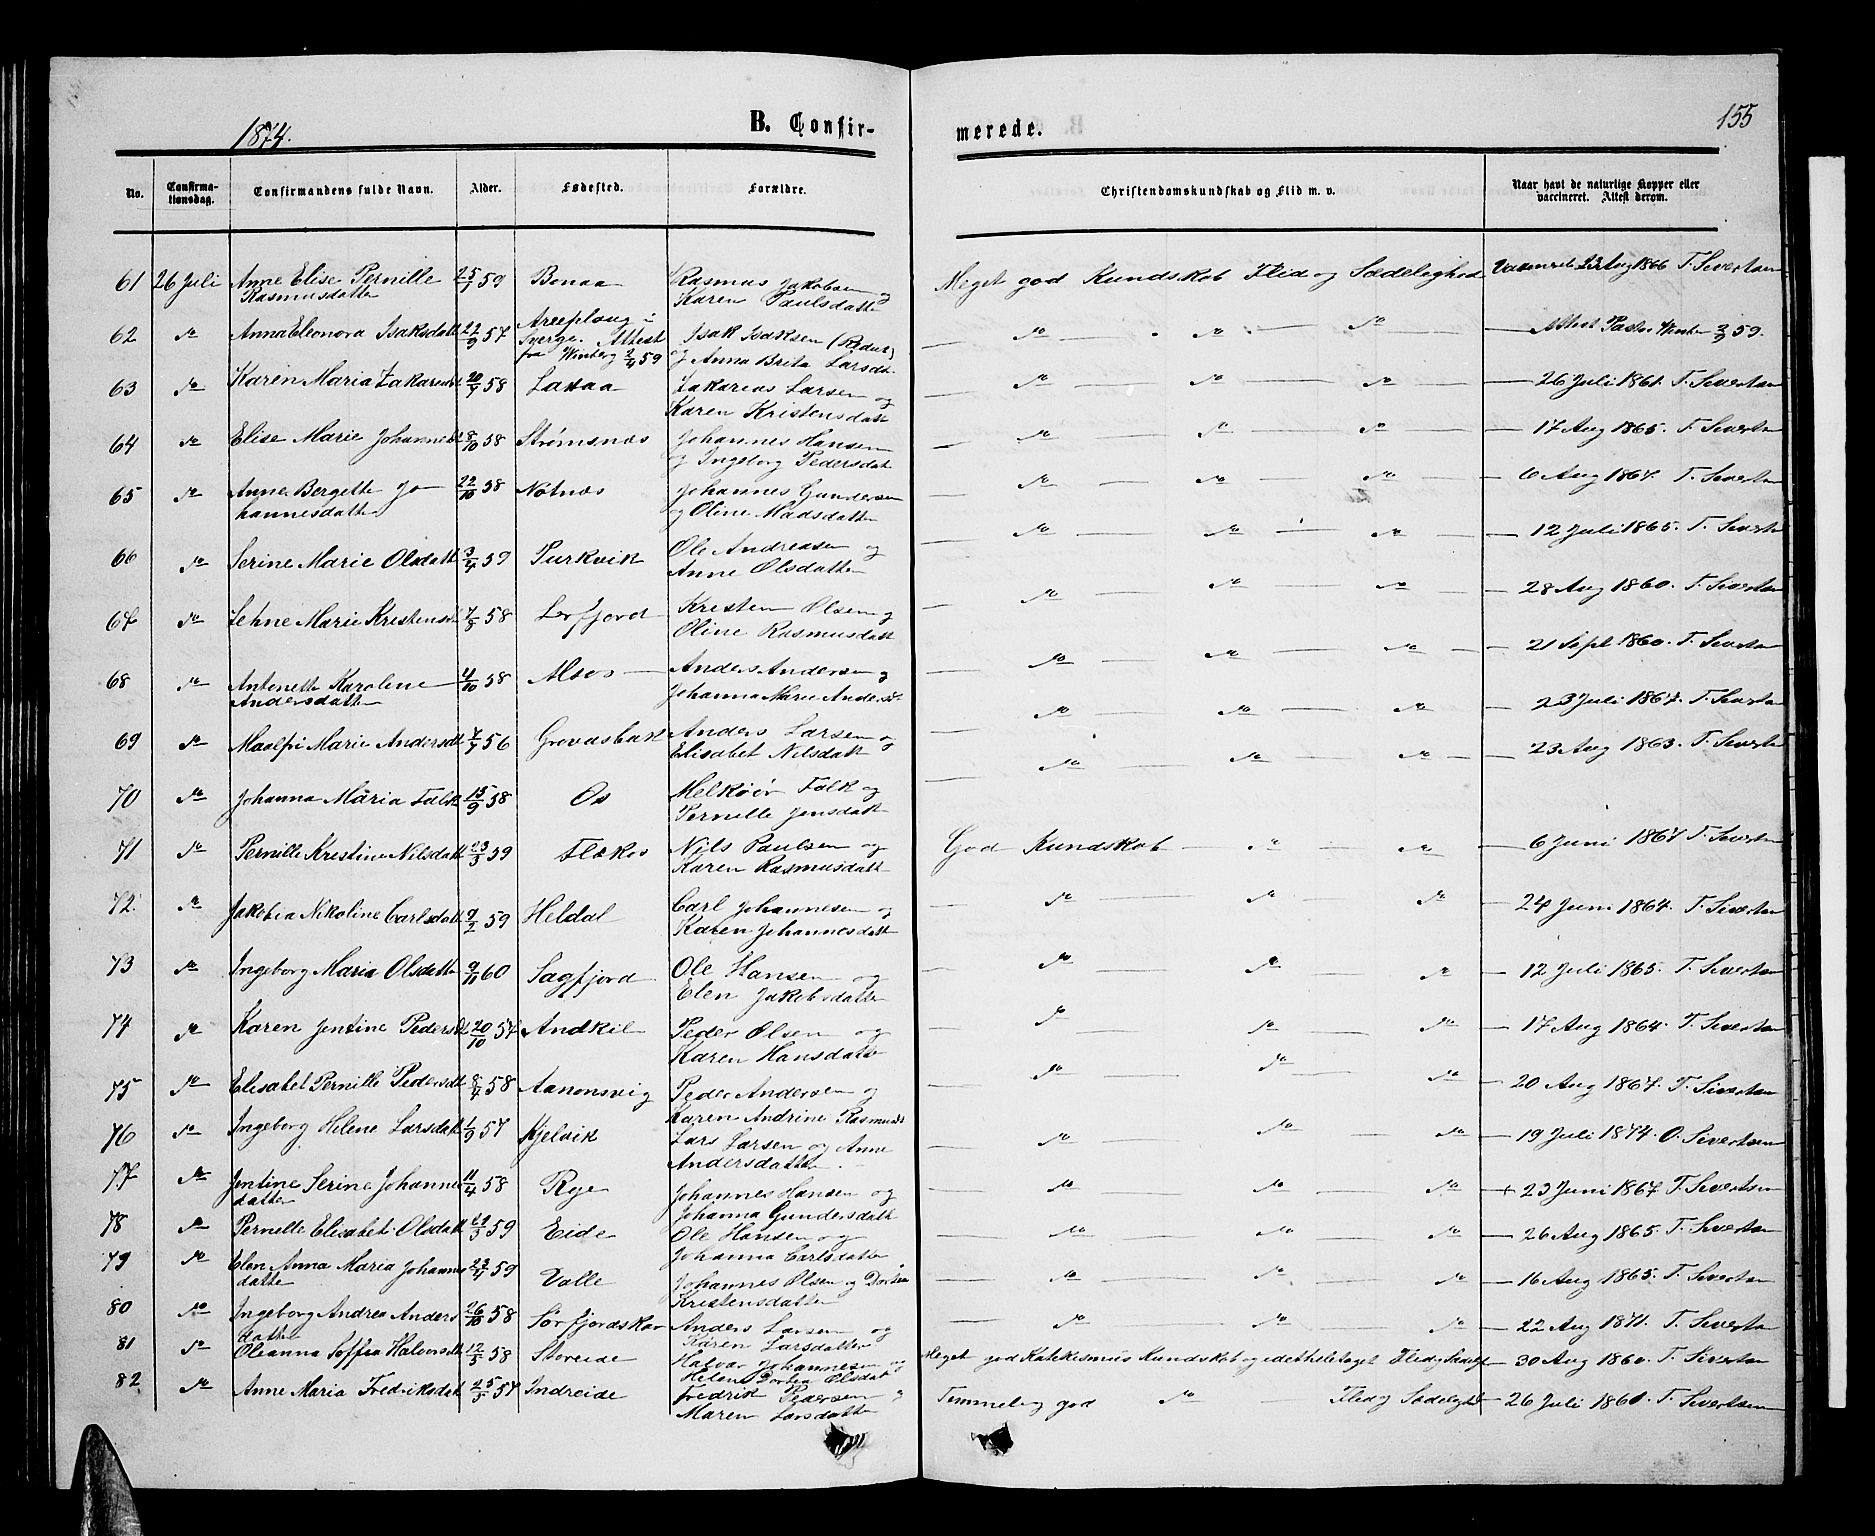 155
1874.
B. Confir-
merede.
No.
Confirma-
tionsdag.
Confirmandens fulde Navn.
Alder.
Fødested.
Forældre.
Christendomskundskab og Flid m. v.
Naar havt de naturlige Kopper eller
vaccineret. Attest derom.
61 26 Juli Anne Elise Pernille 25/7 59 Bonaa Rasmus Jakobsen og Meget god Kundskab Flid og Sædelighed 23 Aug 1866 T. Sivertsen
Rasmusdatter Karen Paulsdatter
62 do Anna Eleonora Isaksdatt 22/9 57 Areeploug i Isak Isaksen do do do Attest Pastor 59.
Sverge. Attest og Anna Brita Larsdt.
fra Winberg 2/4 59
63 do Karen Maria Zakariasdt 20/7 58 Laxaa Zakarias Larsen og do do do 26 Juli 1861. T. Sivertsen
Karen Kristensdatt
64 do Elise Marie Johannesdt 28/10 58 Strømsnæs Johannes Hansen do do do 17 Aug 1865. T. Sivertsen
og Ingeborg Pedersdatt
65 do Anne Bergette Jo- 22/10 58 Notnæs Johannes Gundersen do do do 6 Aug 1867. T. Sivertsen
hannesdatter og Oline Madsdatter
66 do Serine Marie Olsdatt 3/4 59 Purkvik Ole Andreasen og do do do 12 Juli 1865. T. Sivertsen
Anne Olsdatter
67 do Lehne Marie Kristensdt 7/8 58 Lerfjord Kristen Olsen og do do do 28 Aug 1860. T. Sivertsen
Oline Rasmusdatt
68 do Antonette Karoline 4/10 58 Moos Anders Andersen og do do do 21 Sept 1860. T. Sivertsen
Andersdatter Johanna Marie Andersdt
69 do Maalfri Marie Andersdt 7/7 56 Grovasbak Anders Larsen og do do do 23 Juli 1867. T. Sivertsen
Elisabet Nilsdatt
70 do Johanna Maria Falk 15/9 58 Os Melkøir Falk og do do do 23 Aug 1863. T. Sivertsen
Pernille Jensdatt
71 do Pernille Kristine Nilsdatt 23/3 59 Flekos Nils Paulsen og God Kundskab do do 6 Juni 1867 T. Sivertsen
Karen Rasmusdatt
72. do Jakobia Nikoline Carlsdatt 9/2 59 Heldal Carl Johannesen og do do do 24 Juni 1867. T. Sivertsen
Karen Johannesdatt
73 do Ingeborg Maria Olsdatter 9/11 60 Sagfjord Ole Hansen og do do do 12 Juli 1865. T. Sivertsen
Elen Jakobsdatter
74 do Karen Jentine Pedersdt 20/10 57 Andkil Peder Olsen og do do do 17 Aug 1864. T. Sivertsen
Karen Hansdatter
75 do Elisabet Pernille Pedersdt 8/4 58 Aanonsvig Peder Andersen og do do do 20 Aug 1867. T. Sivertsen
Karen Andrine Rasmusdt
76 do Ingeborg Helene Larsdatt 1/9 57 Kjelvik Lars Larsen og Anne do do do 19 Juli 1874. O. Sivertsen
Andersdatter
77 do Jentine Serine Johannes 11/4 58 Røje Johannes Hansen og do do do + 23 Juni 1867 T. Sivertsen
datter Johanna Gundersdatt
78 do Pernelle Elisabet Olsdatt 59 Eide Ole Hansen og do do do 26 Aug 1865. T. Sivertsen
Johanna Carlsdatter
79 do Elen Anna Maria Johannes 23/4 59 Valle Johannes Olsen og Dorthea do do do 16 Aug 1865. T. Sivertsen
datter Kristensdatter
80 do Ingeborg Andrea Anders 26/10 58 Sørfjordskar Anders Larsen og do do do 22 Aug 1871. T. Sivertsen
datter Karen Larsdatter
81 do Oleanna Soffia Halvorsdt 12/5 58 Storeide Halvor Johannesen og Meget god Katekismus Kundskab og idetheletaget Flid og Sædeligh 30 Aug 1860. T. Sivertsen
Helene Dortea Olsdatt
82 do Anne Maria Fredriksdat 25/5 57 Indreide Fredrik Pedersen og Temmelig god do Flid og Sædeligh 26 Juli 1861. T. Sivertsen
Maren Larsdatter